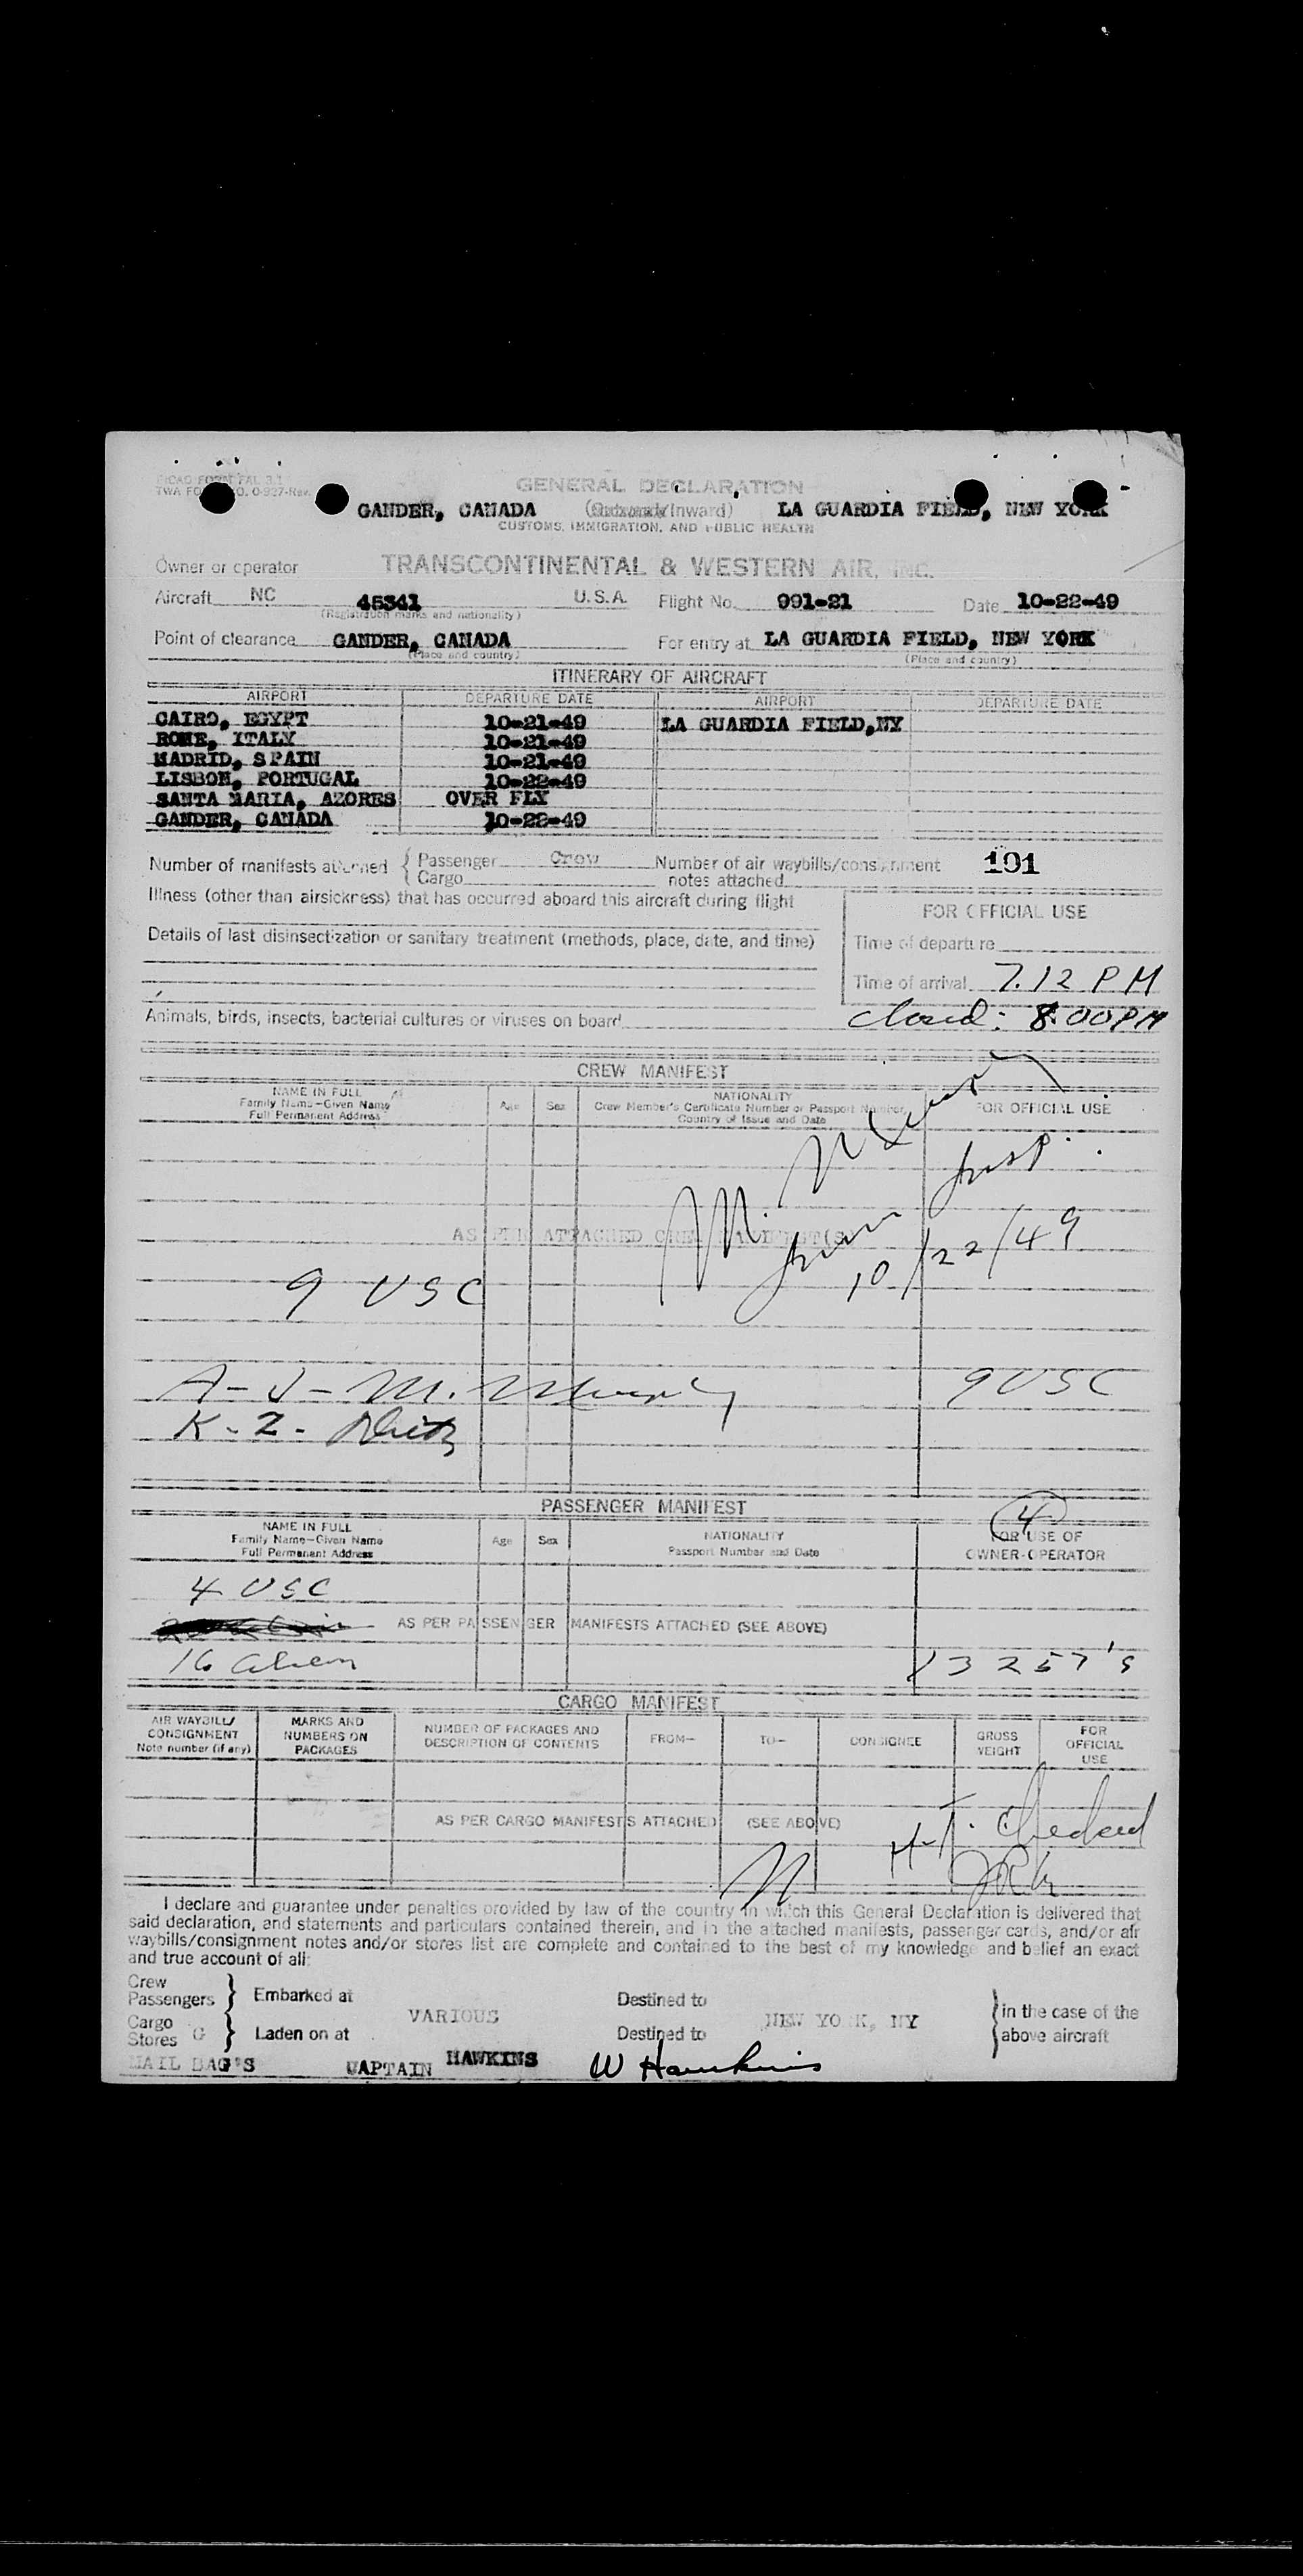 ICAO FORM FAL 3.1
GENERAL DECLARATION
TWA FO O. O-927-Rev.
GANDER, CANADA (Outward/Inward) LA GUARDIA FIELD, NEW YORK
CUSTOMS, IMMIGRATION, AND PUBLIC HEALTH
Owner or operator TRANSCONTINENTAL & WESTERN AIR, INC.
Aircraft NC 45341 U.S.A. Flight No. 991-21 Date 10-22-49
(Registration marks and nationality)
Point of clearance GANDER, CANADA For entry at LA GUARDIA FIELD, NEW YORK
(Place and country) (Place and country)
ITINERARY OF AIRCRAFT
AIRPORT DEPARTURE DATE AIRPORT DEPARTURE DATE
CAIRO, EGYPT 10-21-49 LA GUARDIA FIELD,NY
ROME, ITALY 10-21-49
MADRID, SPAIN 10-21-49
LISBON, PORTUGAL 10-22-49
SANTA MARIA, AZORES OVER FLY
GANDER, CANADA 10-22-49
Number of manifests attached { Passenger Crew Number of air waybills/consignment 101
Cargo notes attached
Illness (other than airsickness) that has occurred aboard this aircraft during flight
FOR OFFICIAL USE
Details of last disinsectization or sanitary treatment (methods, place, date, and time)
Time of departure
Time of arrival 7.12 PM
Animals, birds, insects, bacterial cultures or viruses on board
closed: 8.00PM
CREW MANIFEST
NAME IN FULL
Family Name—Given Name
Full Permanent Address
Age Sex
NATIONALITY
Crew Member's Certificate Number or Passport Number,
Country of Issue and Date
FOR OFFICIAL USE
Insp.
AS PER ATTACHED CREW MANIFEST(S)
10/22/49
9 USC
A-J-M. Murphy 9 USC
K-Z-
PASSENGER MANIFEST
4
NAME IN FULL
Family Name—Given Name
Full Permanent Address
Age Sex
NATIONALITY
Passport Number and Date
FOR USE OF
OWNER-OPERATOR
4 USC
AS PER PASSENGER MANIFESTS ATTACHED (SEE ABOVE)
16 alien 13 257's
CARGO MANIFEST
AIR WAYBILL/
CONSIGNMENT
Note number (if any)
MARKS AND
NUMBERS ON
PACKAGES
NUMBER OF PACKAGES AND
DESCRIPTION OF CONTENTS
FROM—
TO—
CONSIGNEE
GROSS
WEIGHT
FOR
OFFICIAL
USE
AS PER CARGO MANIFESTS ATTACHED (SEE ABOVE)
Checked
I declare and guarantee under penalties provided by law of the country in which this General Declaration is delivered that
said declaration, and statements and particulars contained therein, and in the attached manifests, passenger cards, and/or air
waybills/consignment notes and/or stores list are complete and contained to the best of my knowledge and belief an exact
and true account of all:
Crew
Passengers } Embarked at Destined to
VARIOUS NEW YORK, NY
Cargo
Stores G } Laden on at Destined to
} in the case of the
above aircraft
MAIL BAG'S CAPTAIN HAWKINS W Hawkins